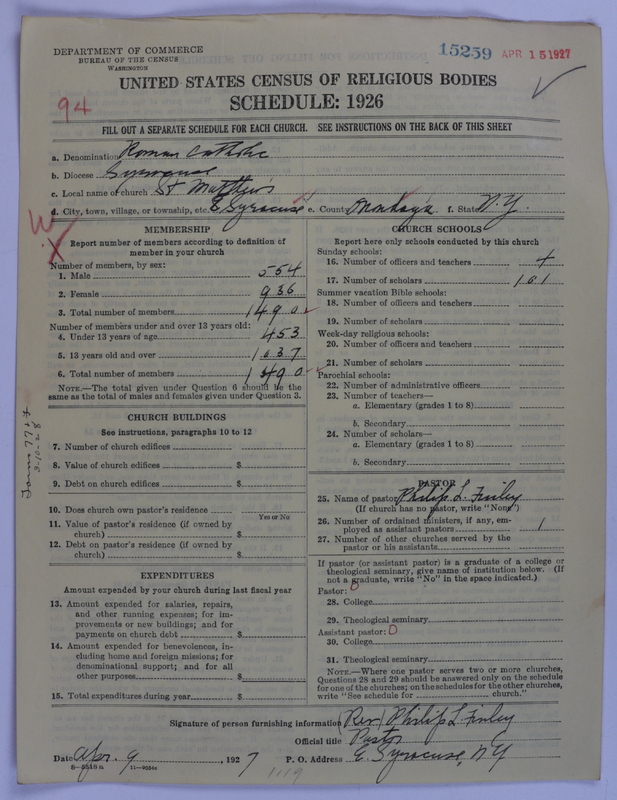 DEPARTMENT OF COMMERCE
BUREAU OF THE CENSUS
WASHINGTON
15259 APR 15 1927
UNITED STATES CENSUS OF RELIGIOUS BODIES
SCHEDULE: 1926
94
FILL OUT A SEPARATE SCHEDULE FOR EACH CHURCH. SEE INSTRUCTIONS ON THE BACK OF THIS SHEET
a. Denomination Roman Catholic
b. Diocese Syracuse
c. Local name of church St Matthew's
d. City, town, village, or township, etc. E Syracuse e. County Onondaga f. State N.Y.
MEMBERSHIP
Report number of members according to definition of
member in your church
Number of members, by sex:
1. Male 554
2. Female 936
3. Total number of members 1490
Number of members under and over 13 years old:
4. Under 13 years of age 453
5. 13 years old and over 1037
6. Total number of members 1490
NOTE.—The total given under Question 6 should be the
same as the total of males and females given under Question 3.
CHURCH BUILDINGS
See instructions, paragraphs 10 to 12
7. Number of church edifices
8. Value of church edifices $
9. Debt on church edifices $
10. Does church own pastor's residence
Yes or No
11. Value of pastor's residence (if owned by
church) $
12. Debt on pastor's residence (if owned by
church) $
EXPENDITURES
Amount expended by your church during last fiscal year
13. Amount expended for salaries, repairs,
and other running expenses; for im-
provements or new buildings; and for
payments on church debt $
14. Amount expended for benevolences, in-
cluding home and foreign missions; for
denominational support; and for all
other purposes $
15. Total expenditures during year $
CHURCH SCHOOLS
Report here only schools conducted by this church
Sunday schools:
16. Number of officers and teachers
17. Number of scholars 101
Summer vacation Bible schools:
18. Number of officers and teachers
19. Number of scholars
Week-day religious schools:
20. Number of officers and teachers
21. Number of scholars
Parochial schools:
22. Number of administrative officers
23. Number of teachers—
a. Elementary (grades 1 to 8)
b. Secondary
24. Number of scholars—
a. Elementary (grades 1 to 8)
b. Secondary
PASTOR
25. Name of pastor Philip L. Finley
(If church has no pastor, write "None")
26. Number of ordained ministers, if any, em-
ployed as assistant pastors 1
27. Number of other churches served by the
pastor or his assistants
If pastor (or assistant pastor) is a graduate of a college or
theological seminary, give name of institution below. (If
not a graduate, write "No" in the space indicated.)
Pastor: 0
28. College
29. Theological seminary
Assistant pastor: 0
30. College
31. Theological seminary
NOTE.—Where one pastor serves two or more churches,
Questions 28 and 29 should be answered only on the schedule
for one of the churches; on the schedules for the other churches,
write "See schedule for church."
Signature of person furnishing information (Rev) Philip L Finley
Official title Pastor
Date Apr. 9, 1927 P. O. Address E. Syracuse, NY
8—5518a 11—9034a
1119